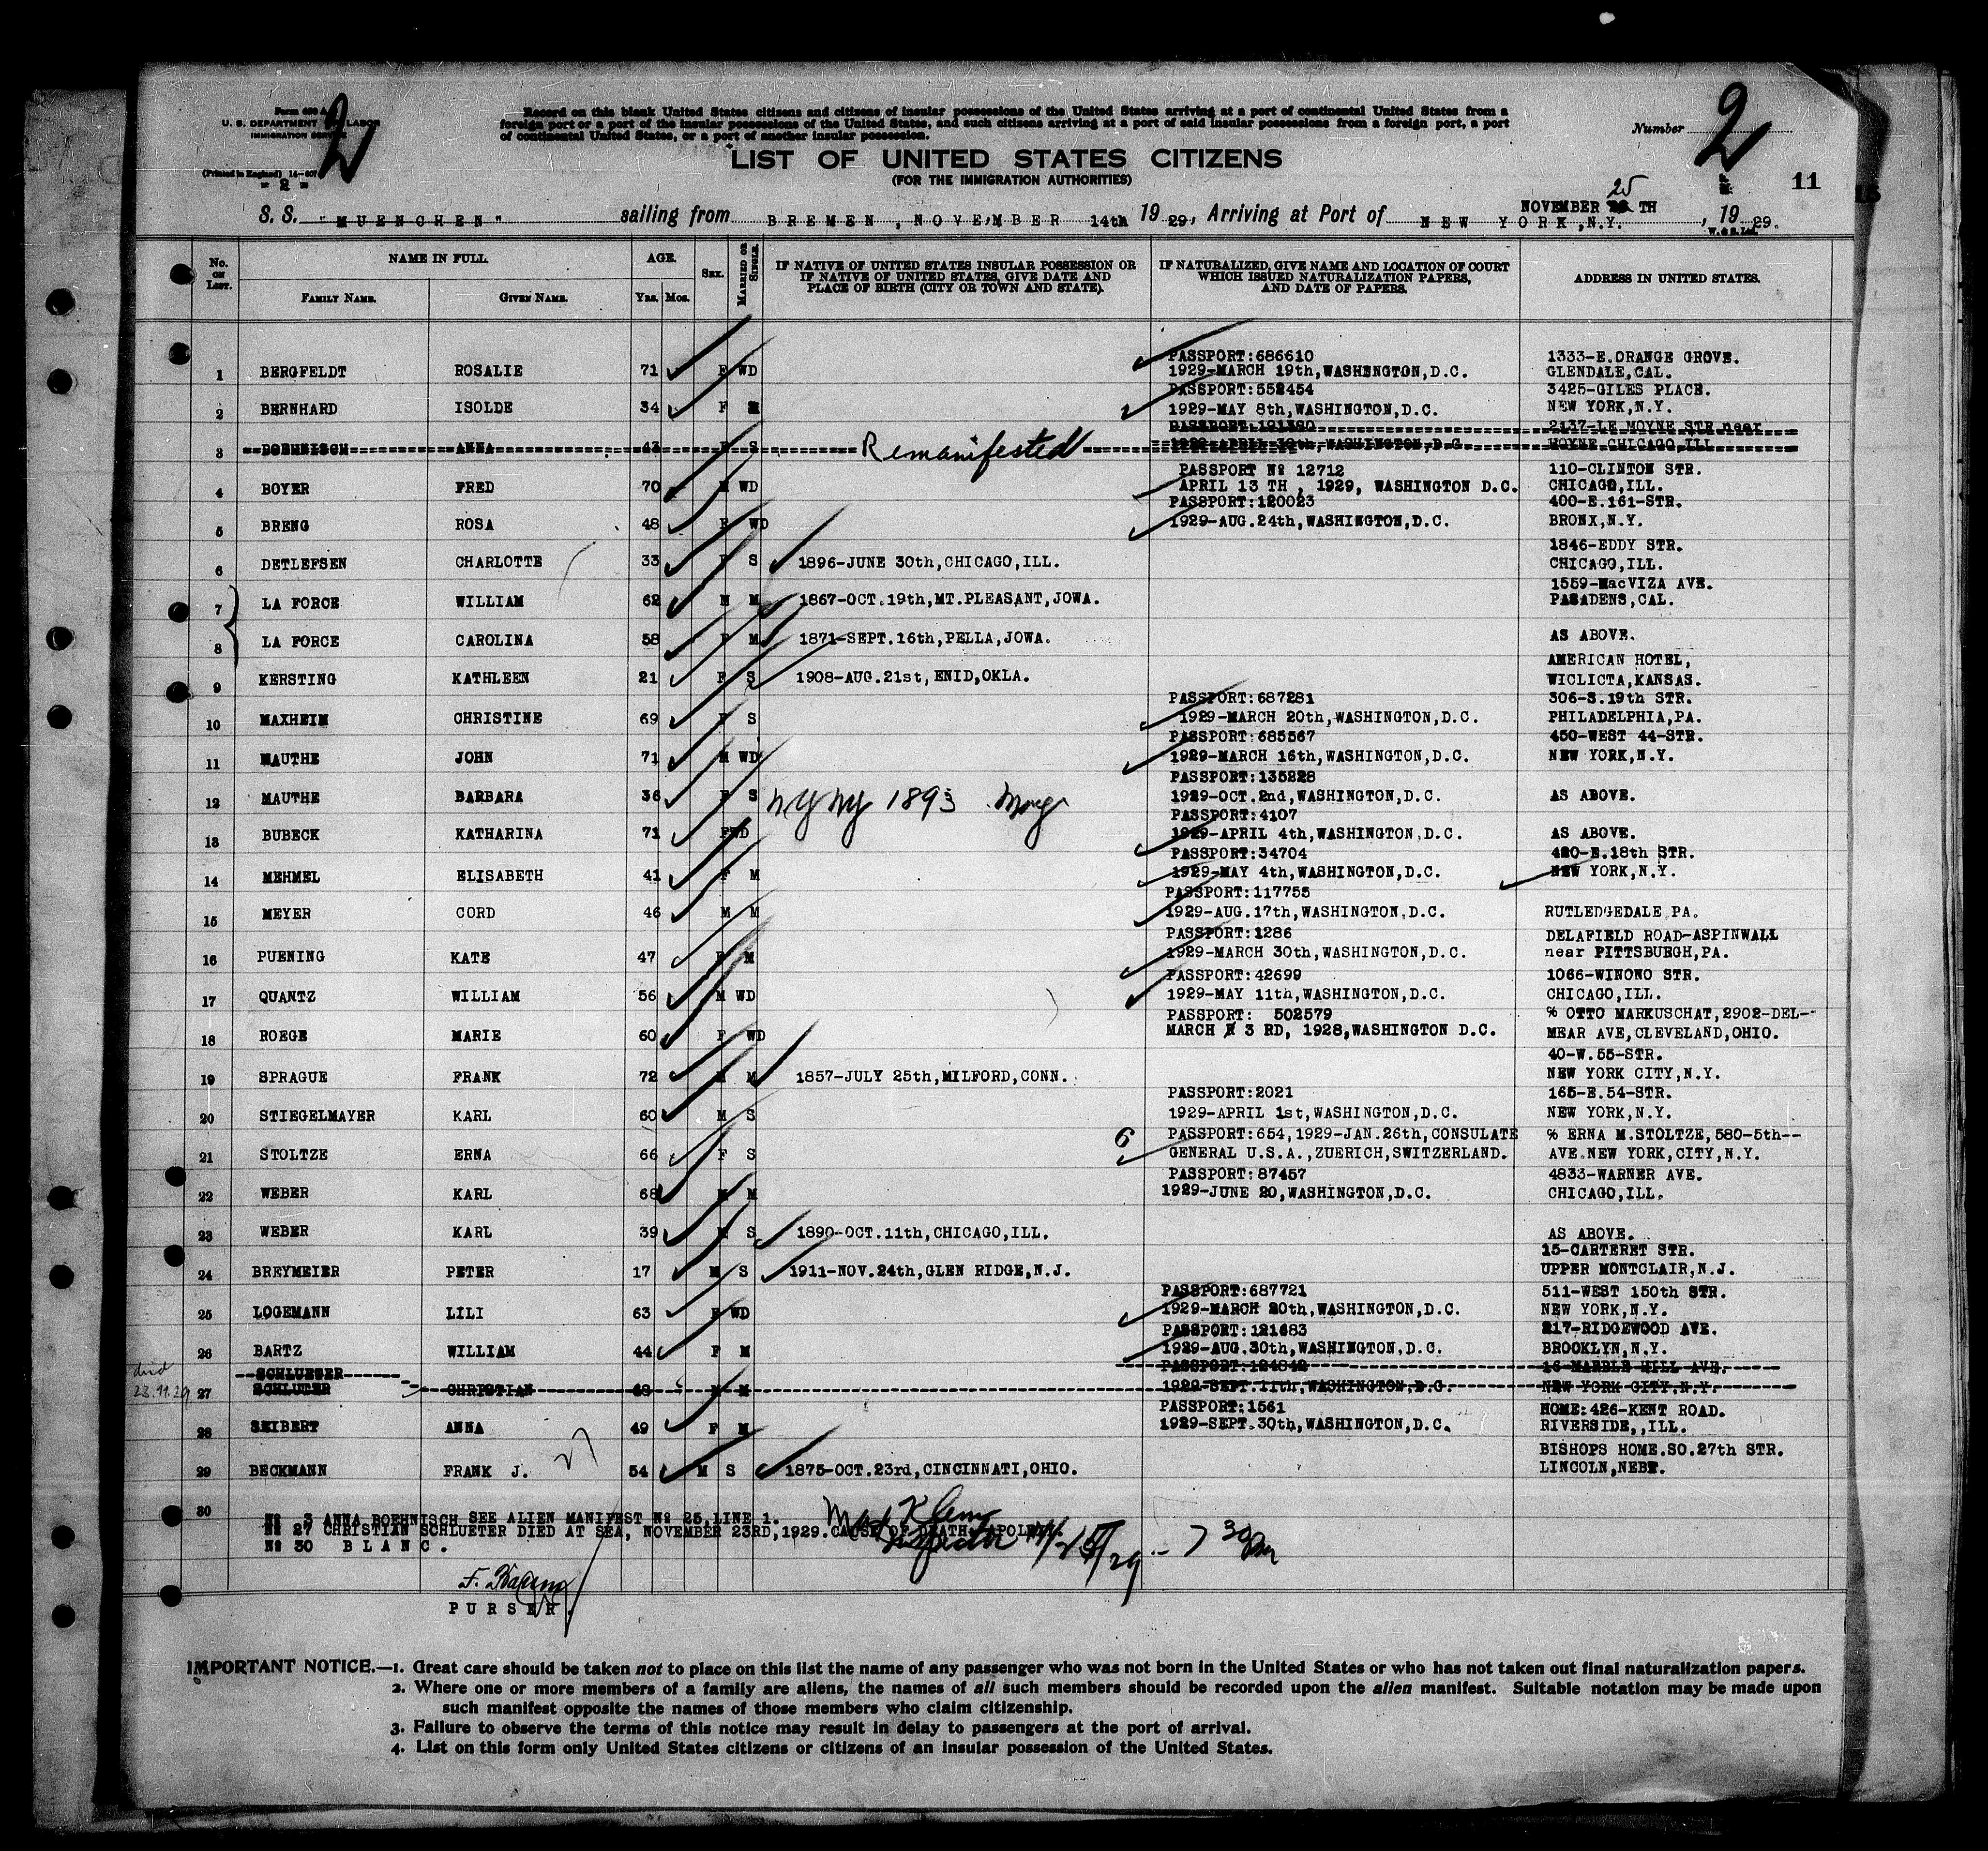 Form 630 A
U. S. DEPARTMENT OF LABOR
IMMIGRATION SERVICE
2
(Printed in England) 14-607
- 2 -
Record on this blank United States citizens and citizens of insular possessions of the United States arriving at a port of continental United States from a
foreign port or a port of the insular possessions of the United States, and such citizens arriving at a port of said insular possessions from a foreign port, a port
of continental United States, or a port of another insular possession.
Number 2
LIST OF UNITED STATES CITIZENS
(FOR THE IMMIGRATION AUTHORITIES)
11
S. S. "MUENCHEN" sailing from BREMEN, NOVEMBER 14th 1929, Arriving at Port of NEW YORK, N.Y. NOVEMBER 25 TH, 1929.
No. ON LIST. NAME IN FULL. AGE. SEX. MARRIED OR SINGLE. IF NATIVE OF UNITED STATES INSULAR POSSESSION OR IF NATIVE OF UNITED STATES, GIVE DATE AND PLACE OF BIRTH (CITY OR TOWN AND STATE). IF NATURALIZED, GIVE NAME AND LOCATION OF COURT WHICH ISSUED NATURALIZATION PAPERS, AND DATE OF PAPERS. ADDRESS IN UNITED STATES.
FAMILY NAME. GIVEN NAME. YRS. MOS.
PASSPORT:686610 1333-E.ORANGE GROVE.
1 BERGFELDT ROSALIE 71 F WD 1929-MARCH 19th,WASHINGTON,D.C. GLENDALE,CAL.
PASSPORT:552454 3425-GILES PLACE.
2 BERNHARD ISOLDE 34 F M 1929-MAY 8th,WASHINGTON,D.C. NEW YORK,N.Y.
PASSPORT:121380 2137-LE MOYNE STR.near
3 BOEHNISCH ANNA 43 F S Remanifested 1929-APRIL 30th,WASHINGTON,D.C. HOYNE CHICAGO,ILL
PASSPORT Nº 12712 110-CLINTON STR.
4 BOYER FRED 70 M WD APRIL 13 TH , 1929, WASHINGTON D.C. CHICAGO,ILL.
PASSPORT:120023 400-E.161-STR.
5 BRENG ROSA 48 F WD 1929-AUG.24th,WASHINGTON,D.C. BRONX,N.Y.
1846-EDDY STR.
6 DETLEFSEN CHARLOTTE 33 F S 1896-JUNE 30th,CHICAGO,ILL. CHICAGO,ILL.
1559-MacVIZA AVE.
7 LA FORCE WILLIAM 62 M M 1867-OCT.19th,MT.PLEASANT,JOWA. PASADENS,CAL.
8 LA FORCE CAROLINA 58 F M 1871-SEPT.16th,PELLA,JOWA. AS ABOVE.
AMERICAN HOTEL,
9 KERSTING KATHLEEN 21 F S 1908-AUG.21st,ENID,OKLA. WICLICTA,KANSAS.
PASSPORT:687281 306-S.19th STR.
10 MAXHEIM CHRISTINE 69 F S 1929-MARCH 20th,WASHINGTON,D.C. PHILADELPHIA,PA.
PASSPORT:685567 450-WEST 44-STR.
11 MAUTHE JOHN 71 M WD 1929-MARCH 16th,WASHINGTON,D.C. NEW YORK,N.Y.
PASSPORT:135228
12 MAUTHE BARBARA 36 F S NY NY 1893 1929-OCT.2nd,WASHINGTON,D.C. AS ABOVE.
PASSPORT:4107
13 BUBECK KATHARINA 71 F WD 1929-APRIL 4th,WASHINGTON,D.C. AS ABOVE.
PASSPORT:34704 420-E.18th STR.
14 MEHMEL ELISABETH 41 F M 1929-MAY 4th,WASHINGTON,D.C. NEW YORK,N.Y.
PASSPORT:117755
15 MEYER CORD 46 M M 1929-AUG.17th,WASHINGTON,D.C. RUTLEDGEDALE PA.
PASSPORT:1286 DELAFIELD ROAD-ASPINWALL
16 PUENING KATE 47 F M 1929-MARCH 30th,WASHINGTON,D.C. near PITTSBURGH,PA.
PASSPORT:42699 1066-WINOWO STR.
17 QUANTZ WILLIAM 56 M WD 1929-MAY 11th,WASHINGTON,D.C. CHICAGO,ILL.
PASSPORT: 502579 % OTTO MARKUSCHAT,2902-DEL--
18 ROEGE MARIE 60 F WD MARCH 3 RD, 1928,WASHINGTON D.C. MEAR AVE,CLEVELAND,OHIO.
40-W.55-STR.
19 SPRAGUE FRANK 72 M M 1857-JULY 25th,MILFORD,CONN. NEW YORK CITY,N.Y.
PASSPORT:2021 165-E.54-STR.
20 STIEGELMAYER KARL 60 M S 1929-APRIL 1st,WASHINGTON,D.C. NEW YORK,N.Y.
6 PASSPORT:654,1929-JAN.26th,CONSULATE % ERNA M.STOLTZE,580-5th--
21 STOLTZE ERNA 66 F S GENERAL U.S.A.,ZUERICH,SWITZERLAND. AVE.NEW YORK,CITY,N.Y.
PASSPORT:87457 4833-WARNER AVE.
22 WEBER KARL 68 M M 1929-JUNE 20,WASHINGTON,D.C. CHICAGO,ILL.
23 WEBER KARL 39 M S 1890-OCT.11th,CHICAGO,ILL. AS ABOVE.
15-CARTERET STR.
24 BREYMEIER PETER 17 M S 1911-NOV.24th,GLEN RIDGE,N.J. UPPER MONTCLAIR,N.J.
PASSPORT:687721 511-WEST 150th STR.
25 LOGEMANN LILI 63 F WD 1929-MARCH 20th,WASHINGTON,D.C. NEW YORK,N.Y.
PASSPORT:121683 217-RIDGEWOOD AVE.
26 BARTZ WILLIAM 44 F M 1929-AUG.30th,WASHINGTON,D.C. BROOKLYN,N.Y.
died SCHLUETER PASSPORT:124842 16-MARBLE HILL AVE.
23.11.29 27 SCHLUTER CHRISTIAN M M 1929-SEPT.11th,WASHINGTON,D.C. NEW YORK CITY,N.Y.
PASSPORT:1561 HOME:426-KENT ROAD.
28 SEIBERT ANNA 49 F M 1929-SEPT.30th,WASHINGTON,D.C. RIVERSIDE,,ILL.
BISHOPS HOME.SO.27th STR.
29 BECKMANN FRANK J. 54 M S 1875-OCT.23rd,CINCINNATI,OHIO. LINCOLN,NEBR.
30
Nº 3 ANNA BOEHNISCH SEE ALIEN MANIFEST Nº 25,LINE 1.
Nº 27 CHRISTIAN SCHLUETER DIED AT SEA, NOVEMBER 23RD,1929.CAUSE OF DEATH: APOLEXY.
Nº 30 BLANC.
Inspector 11/25/29
PURSER.
IMPORTANT NOTICE.—1. Great care should be taken not to place on this list the name of any passenger who was not born in the United States or who has not taken out final naturalization papers.
2. Where one or more members of a family are aliens, the names of all such members should be recorded upon the alien manifest. Suitable notation may be made upon
such manifest opposite the names of those members who claim citizenship.
3. Failure to observe the terms of this notice may result in delay to passengers at the port of arrival.
4. List on this form only United States citizens or citizens of an insular possession of the United States.